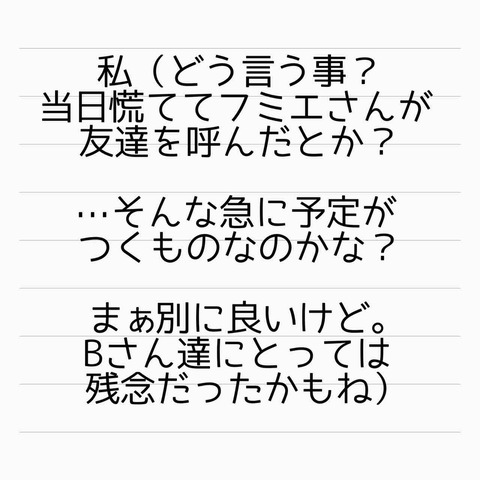 私（どう言う事？
当日慌ててフミエさんが
友達を呼んだとか？
…そんな急に予定が
つくものなのかな？
まぁ別に良いけど。
Bさん達にとっては
残念だったかもね）